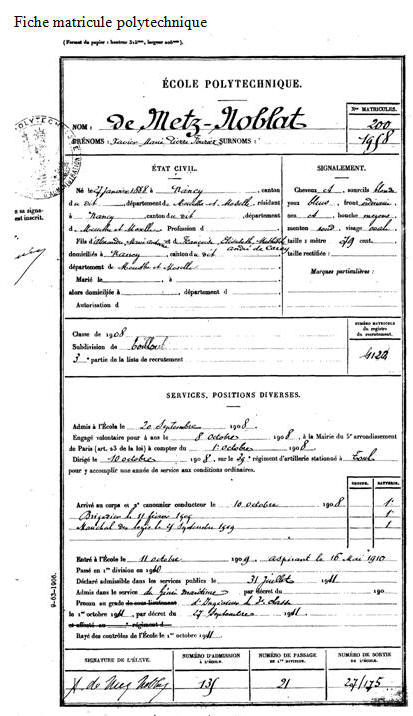 Fiche matricule polytechnique
(Format du papier : hauteur 315mm, largeur 206mm).
ÉCOLE POLYTECHNIQUE.
Nos MATRICULES.
NOM : de Metz-Noblat
200
PRÉNOMS : Xavier Marie Pierre Fourier SURNOMS :
1958
POLYTECH
ÉTAT CIVIL.
SIGNALEMENT.
Né le 27 janvier 1888 à Nancy, canton
du dit, département de Meurthe et Moselle, résidant
à Nancy, canton du dit, département
de Meurthe et Moselle Profession d
Fils d et de Françoise Elisabeth Mathilde
domiciliés à Nancy, canton du dit
département de Meurthe et Moselle
Marié le , à
alors domiciliée à , département d
Autorisation d
Cheveux et sourcils blonds
yeux bleus, front
nez , bouche moyenne
menton rond, visage ovale
taille : 1 mètre 79 cent.
taille rectifiée :
Marques particulières :
sa signa-
est inscrit.
Classe de 1908
Subdivision de Toul
3e partie de la liste de recrutement
NUMÉRO MATRICULE
du registre
du recrutement.
4122
SERVICES, POSITIONS DIVERSES.
Admis à l'École le 20 Septembre 1908
Engagé volontaire pour 4 ans le 8 octobre 1908, à la Mairie du 5e arrondissement
de Paris (art. 23 de la loi) à compter du 1er octobre 1908
Dirigé le 10 octobre 1908, sur le 39e régiment d'artillerie stationné à Toul
pour y accomplir une année de service aux conditions ordinaires.
GROUPE. BATTERIE.
Arrivé au corps et 2e canonnier conducteur le 10 octobre 1908
Brigadier le 11 février 1909
Maréchal des logis le 25 Septembre 1909
Entré à l'École le 11 octobre 1909 aspirant le 16 Mai 1910
Passé en 1re division en 1910
Déclaré admissible dans les services publics le 31 Juillet 1911
Admis dans le service du Génie maritime par décret du 190
Promu au grade de sous-lieutenant d'Ingénieur de 3e classe
le 1er octobre 1911, par décret du 27 Septembre 1911
et affecté au régiment d
Rayé des contrôles de l'École le 1er octobre 1911
9-63-1906.
SIGNATURE DE L'ÉLEVE.
NUMÉRO D'ADMISSION
à L'ÉCOLE.
NUMÉRO DE PASSAGE
EN 1re DIVISION.
NUMÉRO DE SORTIE
DE L'ÉCOLE.
X. de Metz Noblat
135
21
27/175